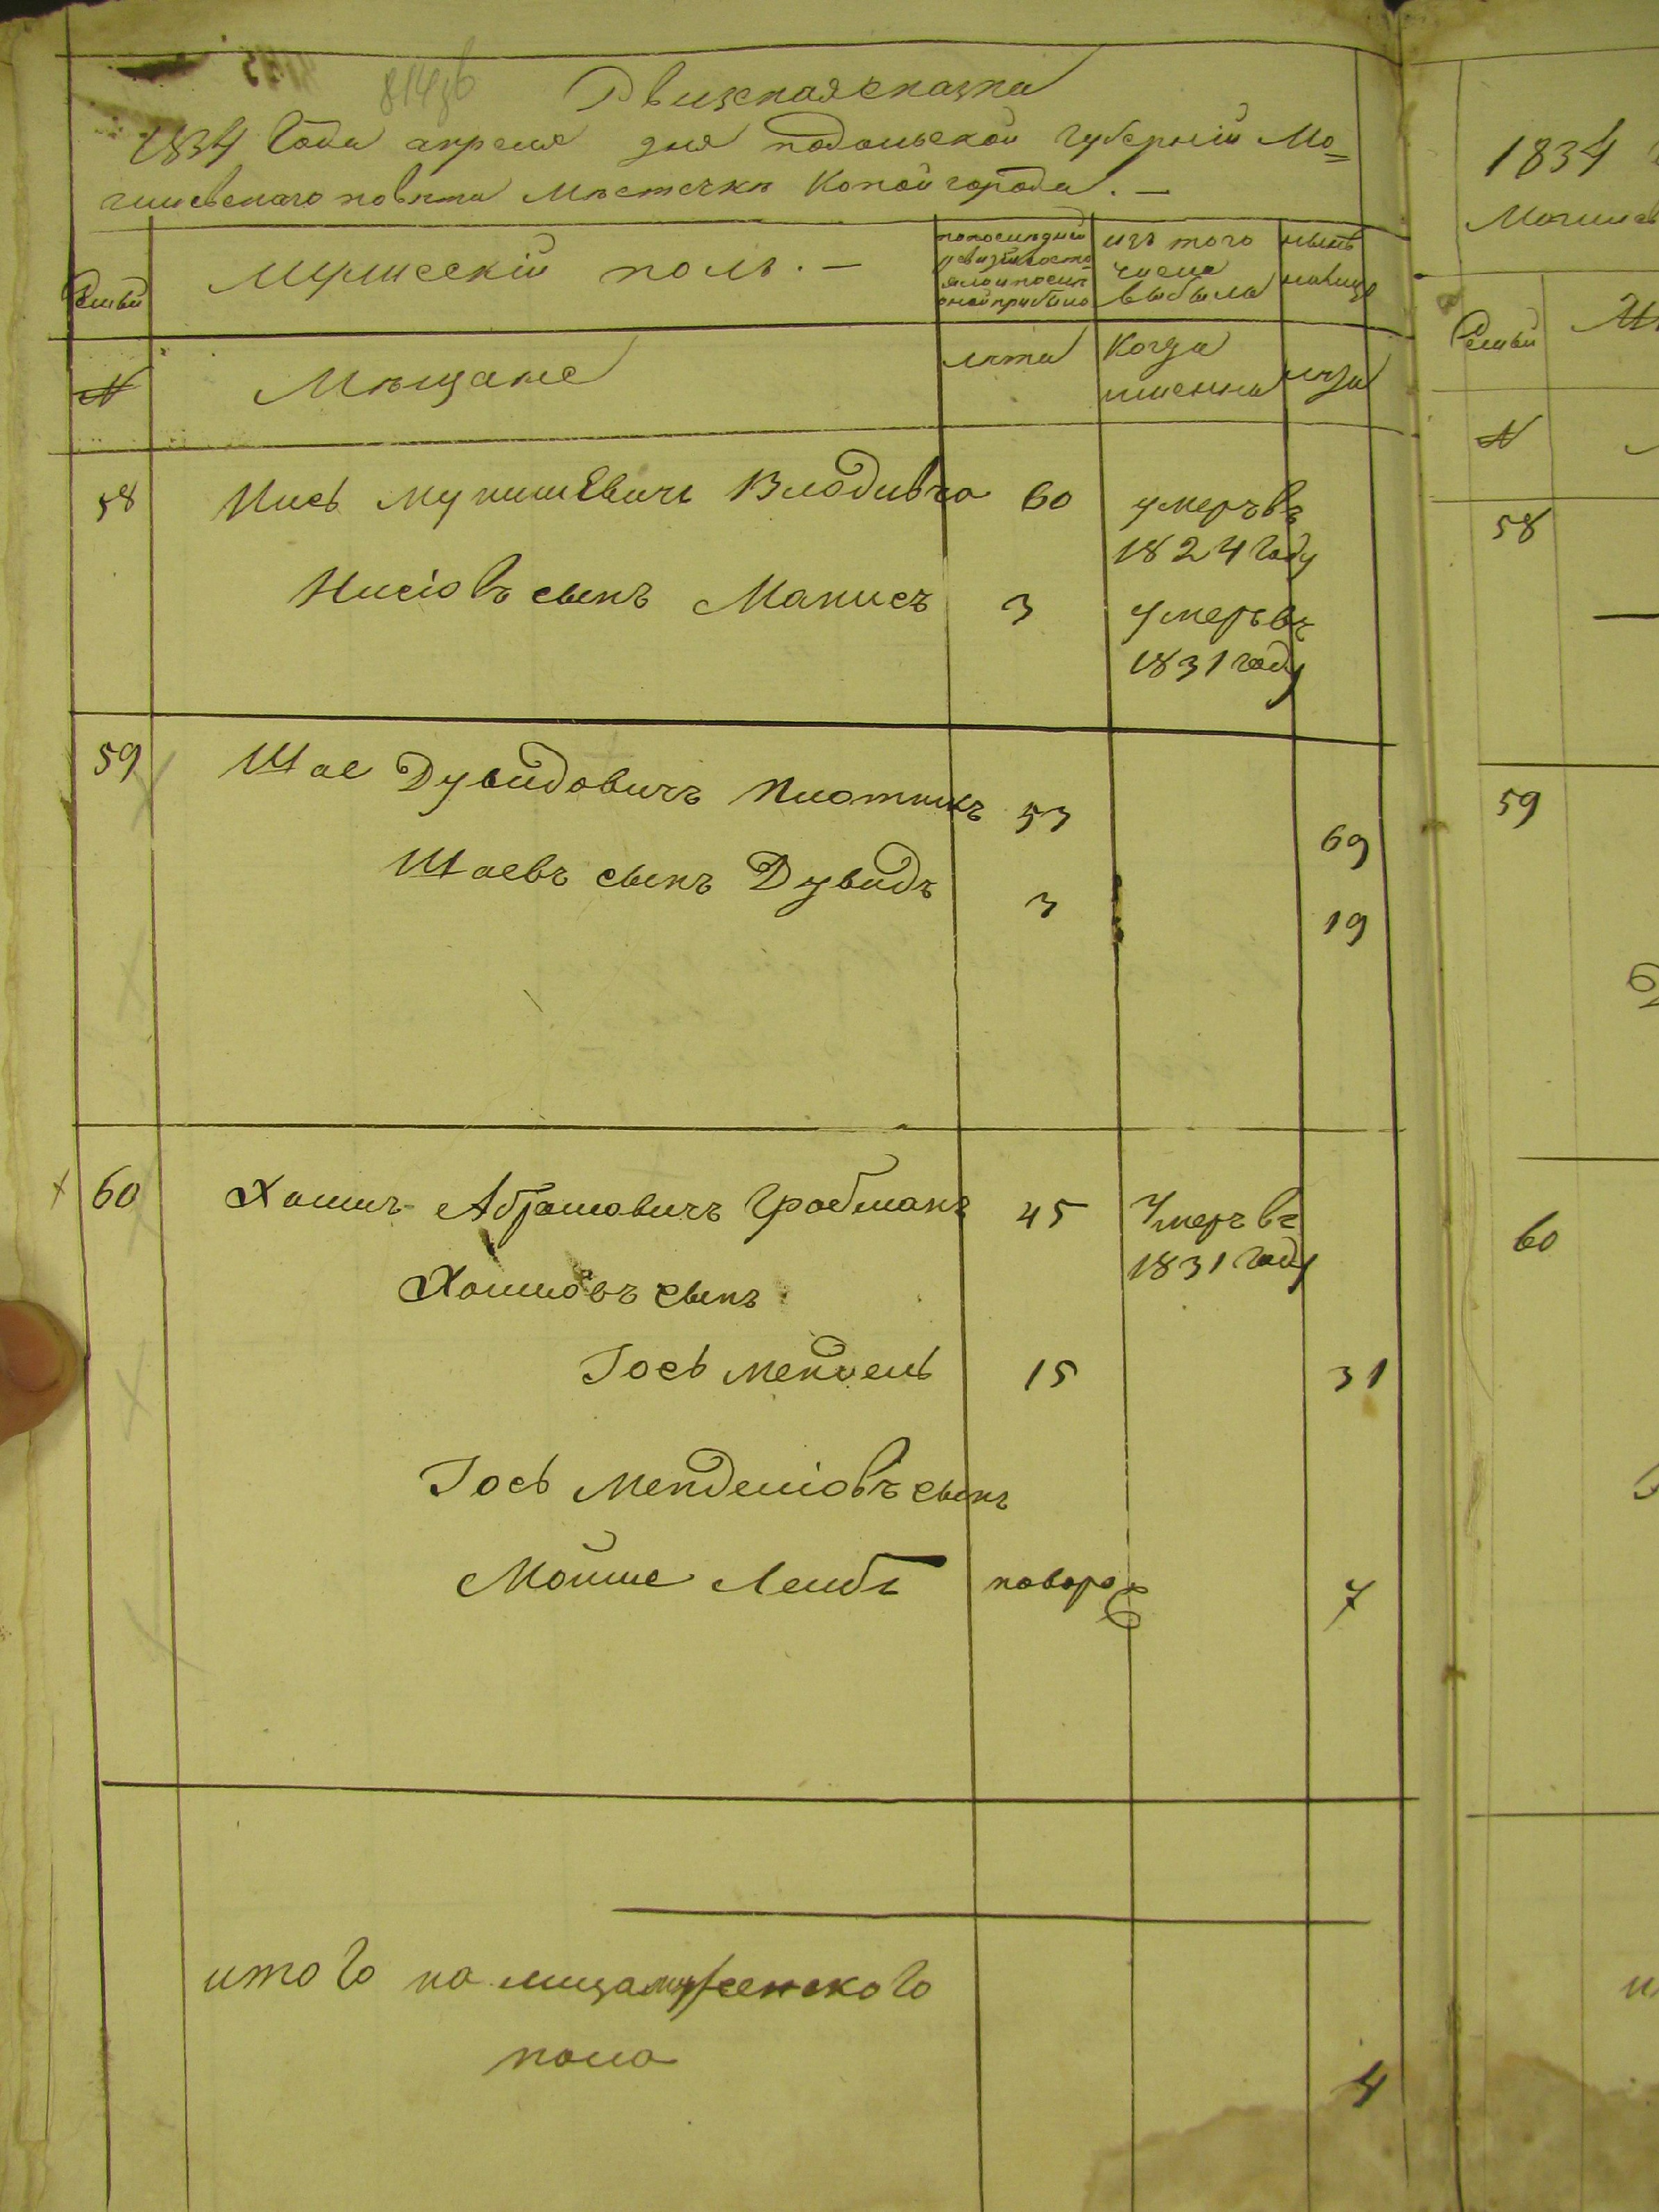 Ревизская сказка
1834 Года апреля дня подольской губернiи Мо=
гилевского повѣта Мѣстечка Копойгорода. —
Семьи
мужескiй полъ. —
по последней
ревизiи состо-
яло и после
оной прибыло
изъ того
числа
выбыло
нынѣ
налицо
№
Мѣщане
лѣта
Когда
именно
лѣта
58 Нись Мунишевичъ Влодивка 60 умеръ въ
1824 Году
Нисiовъ сынъ Манисъ 3 умеръ въ
1831 году
59 Шае Дувидовичъ Плотникъ 53 69
Шаевъ сынъ Дувидъ 3 19
60 Хаимъ Абрамовичъ Грабманъ 45 Умеръ въ
1831 году
Хаимовъ сынъ
Iось Мендель 15 31
Iось Менделiовъ сынъ
Мойше Лейбъ новоро 7
итого на лицо мужеского
пола
4
1834
Могилев
Семьи
№
58
59
60